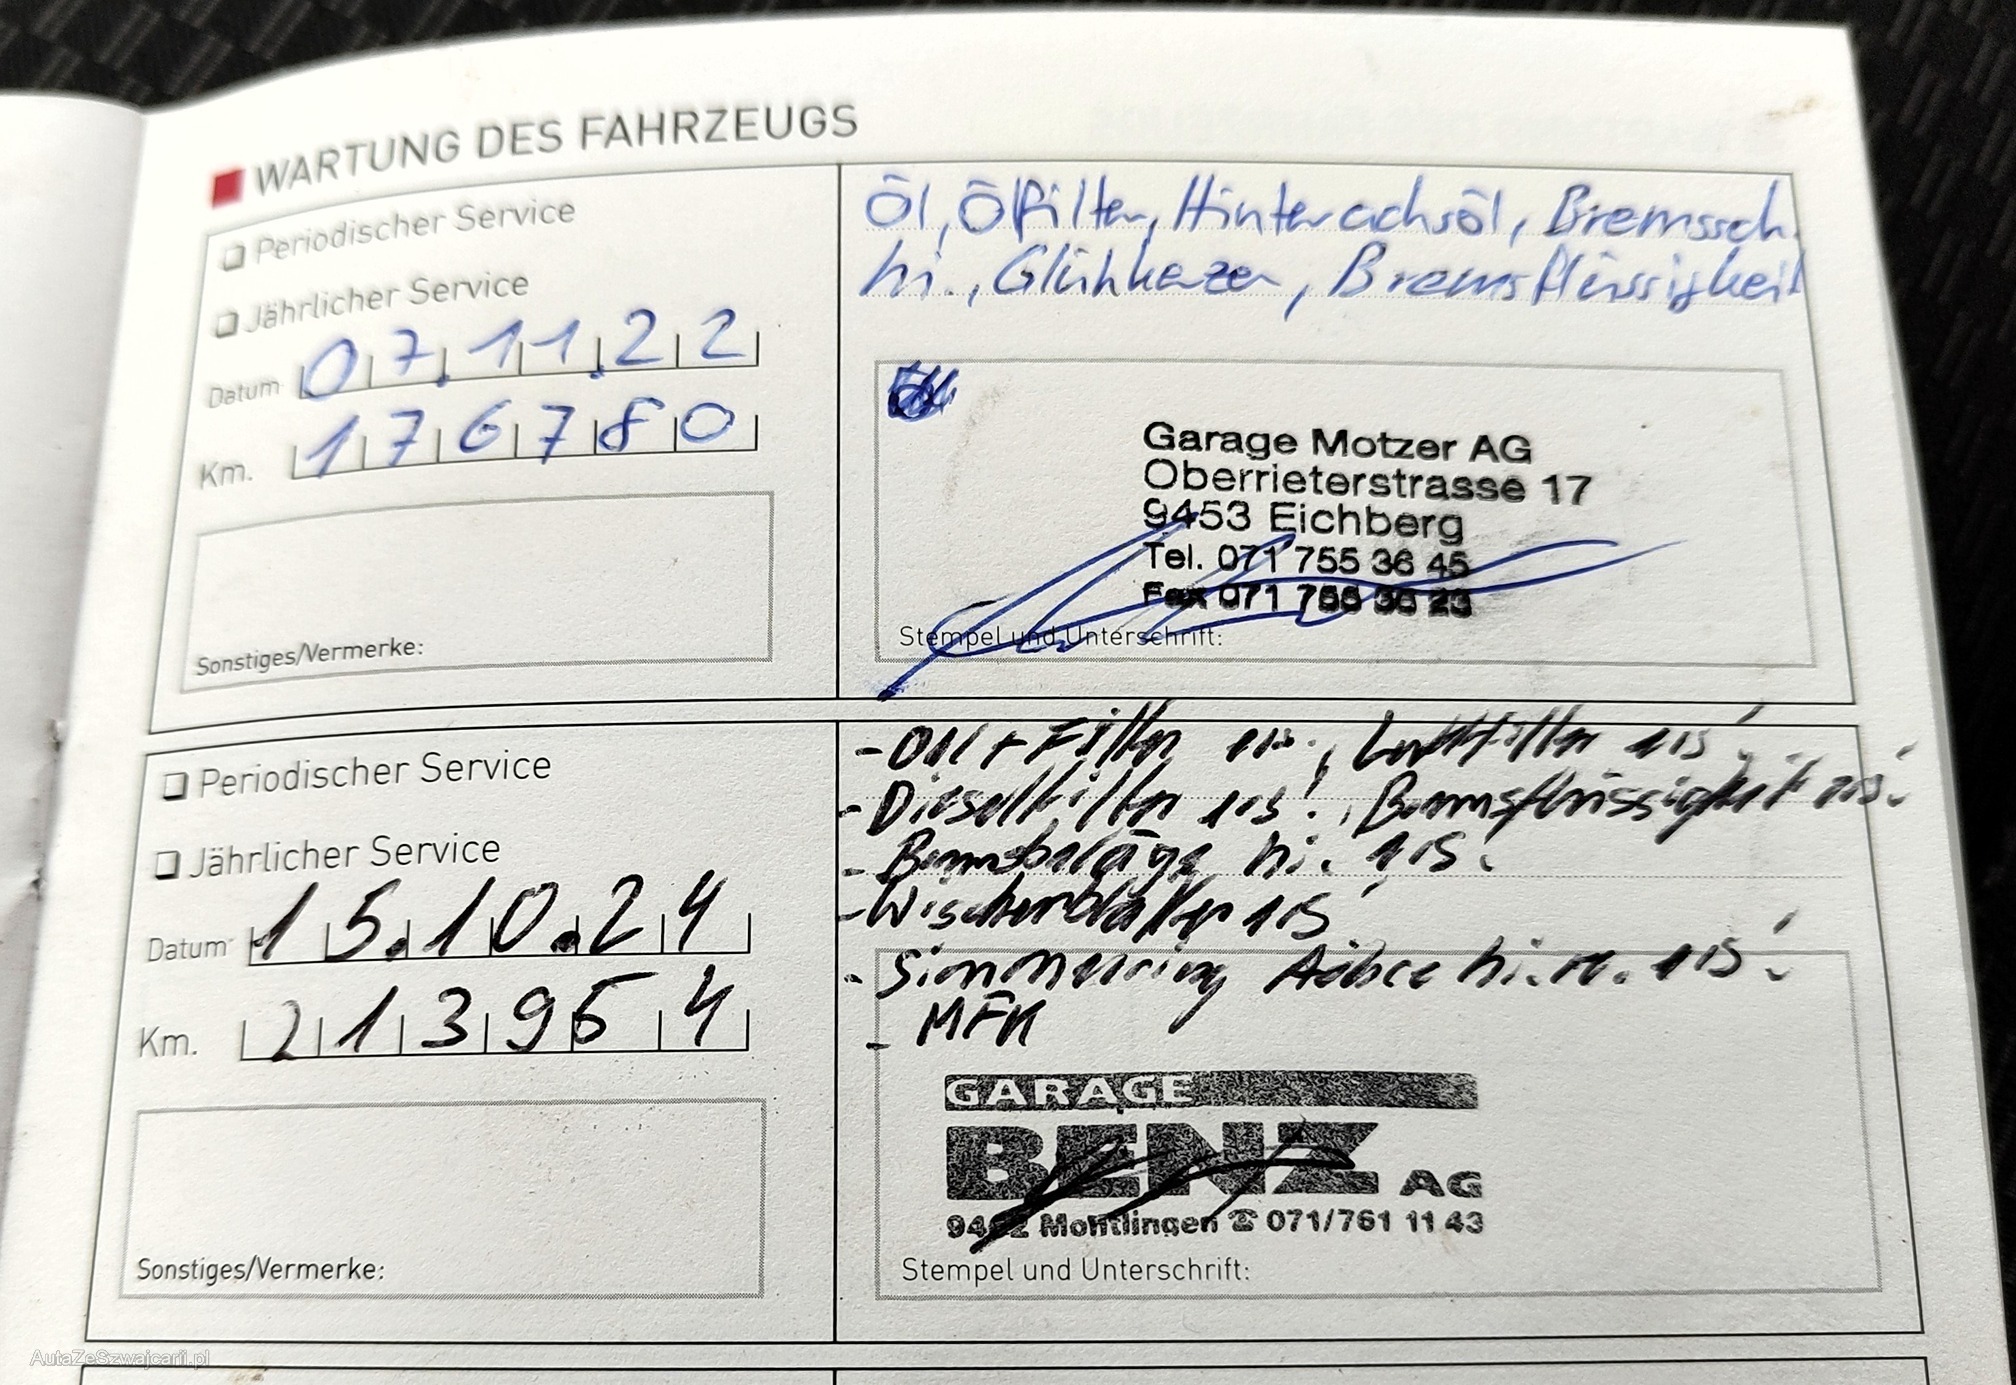 WARTUNG DES FAHRZEUGS
Periodischer Service
Jährlicher Service
Datum 07.11.22
Km. 176780
Sonstiges/Vermerke:
Öl, Ölfilter, Hinterachsöl, Bremssch.
hi., Glühkezen, Bremsflüssigkeit
Garage Motzer AG
Oberrieterstrasse 17
9453 Eichberg
Tel. 071 755 36 45
Fax 071 755 36 23
Stempel und Unterschrift:
Periodischer Service
Jährlicher Service
Datum 15.10.24
Km. 213964
Sonstiges/Vermerke:
- Oil + Filter ers., Luftfilter ers.
- Dieselfilter ers., Bremsflüssigkeit ers.
- Bremsbeläge hi. ers.
- Wischerblätter ers.
- Simmerring hi. re. ers.
- MFK
GARAGE
BENZ AG
9462 Montlingen ☎ 071/761 11 43
Stempel und Unterschrift:
AutaZeSzwajcarii.pl